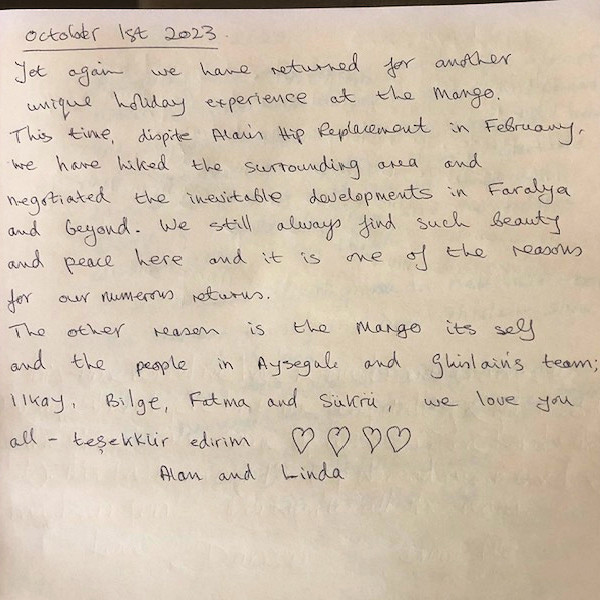 octobber 1st 2023.
Yet again we have returned for another
unique holiday experience at the Mango.
This time, dispite Alan's Hip Replacement in February,
we have hiked the surrounding area and
negotiated the inevitable developments in Faralya
and beyond. We still always find such beauty
and peace here and it is one of the reasons
for our numerous returns.
The other reason is the Mango its self
and the people in Aysegule and Ghislain's team;
Ilkay, Bilge, Fatma and Sükrü, we love you
all - teşekkür edirim ♡ ♡ ♡ ♡
Alan and Linda